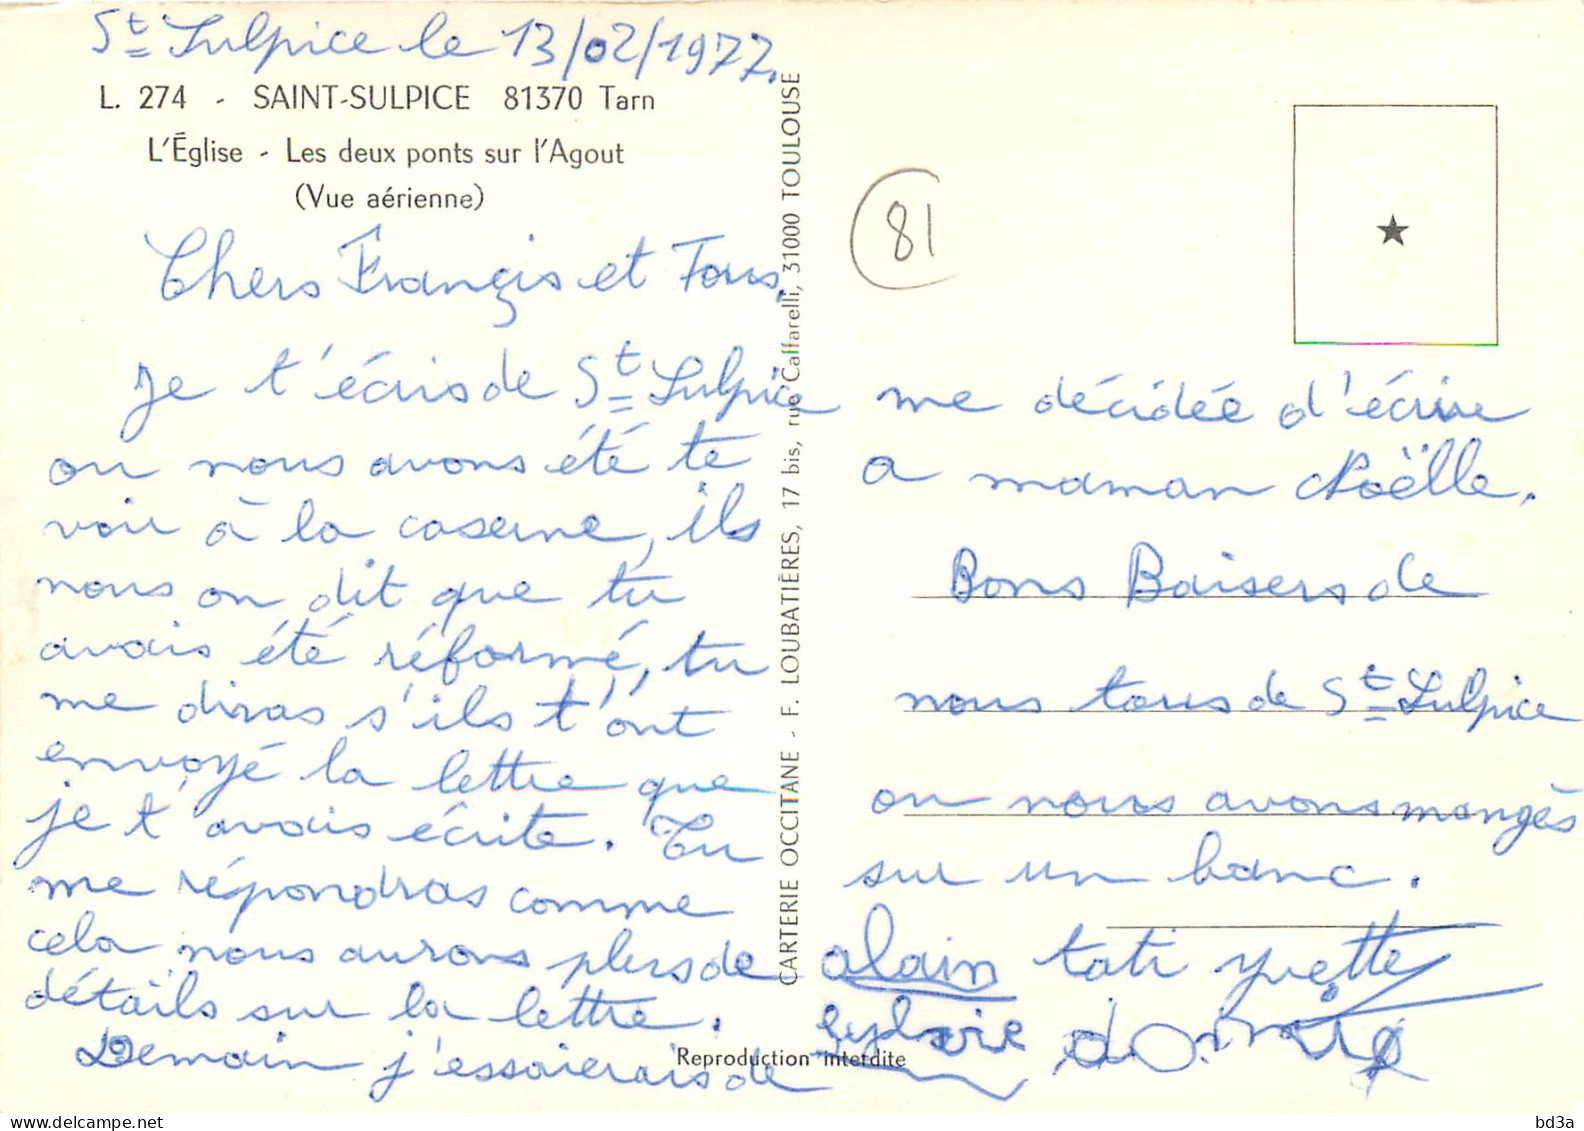 St Sulpice le 13/02/1977.
L. 274 - SAINT-SULPICE 81370 Tarn
L'Église - Les deux ponts sur l'Agout
(Vue aérienne)
Chers Françis et Tous,
Je t'écris de St Sulpice
ou nous avons été te
voir à la caserne, ils
nous on dit que tu
avais été réformé, tu
me diras s'ils t'ont
envoyé la lettre que
je t'avais écrite. Tu
me répondras comme
cela nous aurons plus de
détails sur la lettre.
Demain j'essaierais de
CARTERIE OCCITANE - F. LOUBATIÈRES, 17 bis, rue Caffarelli, 31000 TOULOUSE
81
me décidée d'écrire
a maman Noëlle.
Bons Baisers de
nous tous de St Sulpice
ou nous avons mangès
sur un banc.
alain tati yvette
Sylvie
Reproduction interdite
bd3a